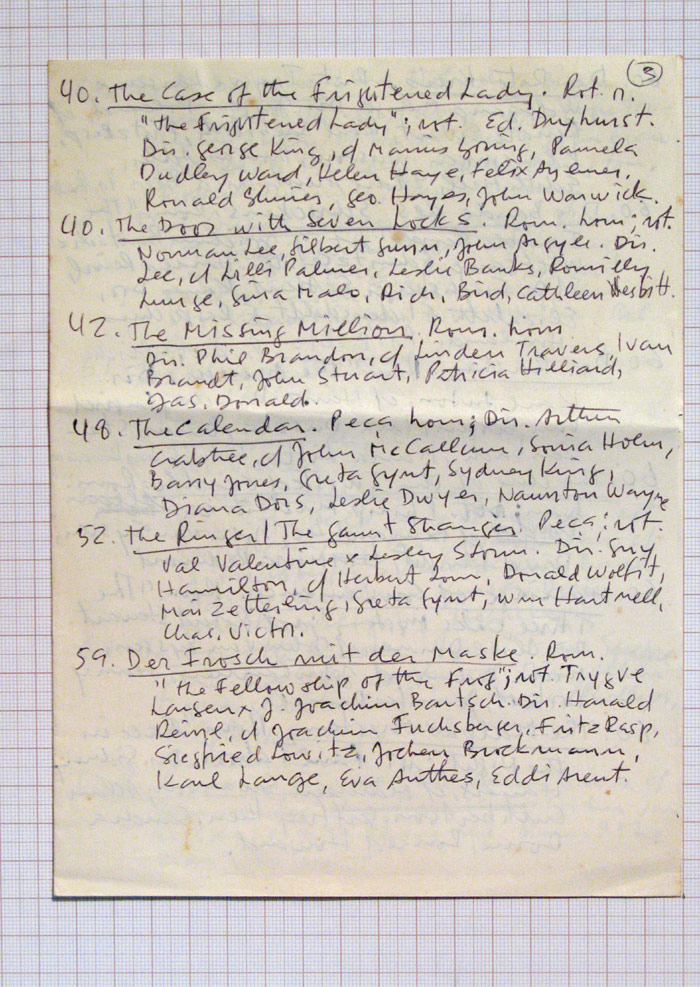 3
40. The Case of the Frightened Lady. Rot. n.
"the Frightened Lady"; rot. Ed. Dryhurst.
Dir. George King, cf Marius Goring, Pamela
Dudley Ward, Helen Haye, Felix Aylmer,
Ronald Shiner, Geo. Hayes, John Warwick.
40. The Door with Seven Locks. Rom. hom; rot.
Norman Lee, Gilbert Gunn, John Argyle. Dir.
Lee, cf Lilli Palmer, Leslie Banks, Romilly
Lunge, Gina Malo, Rich. Bird, Cathleen Nesbitt.
42. The Missing Million. Rom. hom
Dir. Phil Brandon, cf Linden Travers, Ivan
Brandt, John Stuart, Patricia Hilliard,
Jas. Donald.
48. The Calendar. Peca hom; Dir. Arthur
Crabtree, cf John McCallum, Sonia Holm,
Barry Jones, Greta Gynt, Sydney King,
Diana Dors, Leslie Dwyer, Naunton Wayne
52. The Ringer/The Gaunt Stranger. Peca; rot.
Val Valentine x Lesley Storm. Dir. Guy
Hamilton, cf Herbert Lom, Donald Wolfit,
Mai Zetterling, Greta Gynt, Wm Hartnell,
Chas. Victor.
59. Der Frosch mit der Maske. Rom.
"the Fellowship of the Frog"; rot. Trygve
Larsen x J. Joachim Bartsch. Dir. Harald
Reinl, cf Joachim Fuchsberger, Fritz Rasp,
Siegfried Lowitz, Jochen Brockmann,
Karl Lange, Eva Anthes, Eddi Arent.